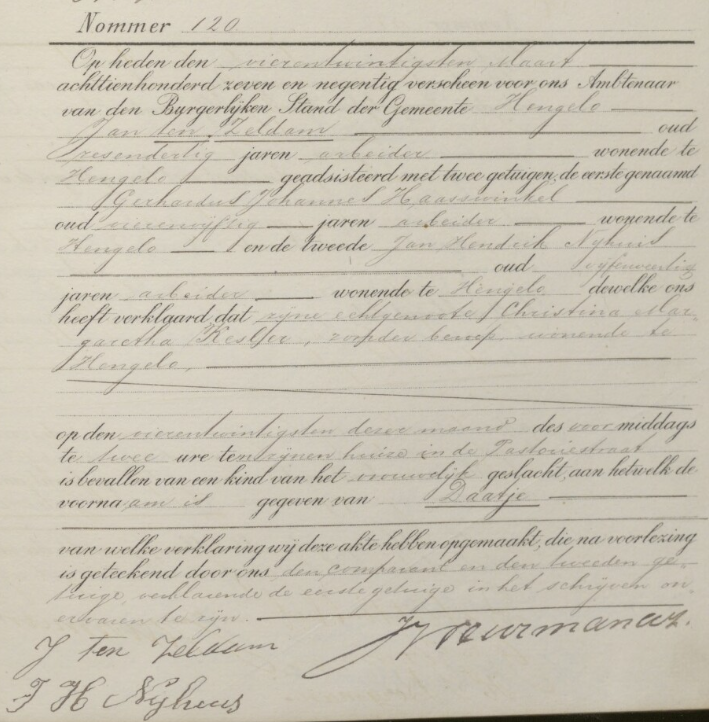 Nommer 120
Op heden den vierentwintigsten Maart
achttienhonderd zeven en negentig verscheen voor ons Ambtenaar
van den Burgerlijken Stand der Gemeente Hengelo
Jan ten Zeldam oud
zesendertig jaren arbeider wonende te
Hengelo geadsisteerd met twee getuigen, de eerste genaamd
Gerhardus Johannes Haasewinkel
oud vierenvijftig jaren arbeider wonende te
Hengelo en de tweede Jan Hendrik Nijhuis
oud vijfenveertig
jaren arbeider wonende te Hengelo dewelke ons
heeft verklaard, dat zijne echtgenoote Christina Mar-
garetha Kesler, zonder beroep, wonende te
Hengelo,
op den vierentwintigsten dezer maand des voor middags
te twee ure ten zijnen huize in de Pastoriestraat
is bevallen van een kind van het vrouwelijk geslacht, aan hetwelk de
voorna am is gegeven van Daatje
van welke verklaring wij deze akte hebben opgemaakt, die na voorlezing
is geteekend door ons den comparant en den tweeden ge-
tuige, verklarende de eerste getuige in het schrijven on-
ervaren te zijn.
J ten Zeldam
J H Nijhuis